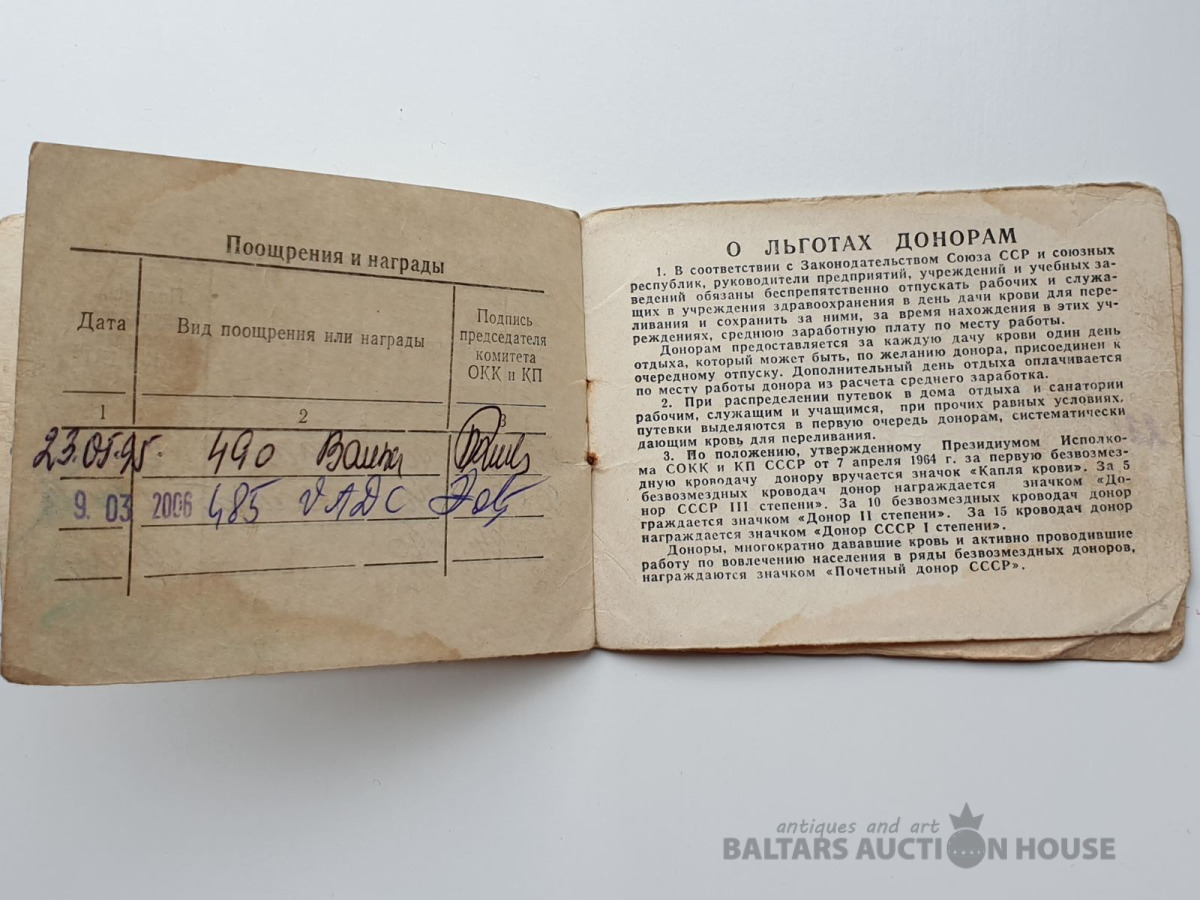 Поощрения и награды
Дата
Вид поощрения или награды
Подпись
председателя
комитета
ОКК и КП
1
2
3
23.05.95. 490
9. 03 2006 485
О ЛЬГОТАХ ДОНОРАМ
1. В соответствии с Законодательством Союза ССР и союзных
республик, руководители предприятий, учреждений и учебных за-
ведений обязаны беспрепятственно отпускать рабочих и служа-
щих в учреждения здравоохранения в день дачи крови для пере-
ливания и сохранить за ними, за время нахождения в этих уч-
реждениях, среднюю заработную плату по месту работы.
Донорам предоставляется за каждую дачу крови один день
отдыха, который может быть, по желанию донора, присоединен к
очередному отпуску. Дополнительный день отдыха оплачивается
по месту работы донора из расчета среднего заработка.
2. При распределении путевок в дома отдыха и санатории
рабочим, служащим и учащимся, при прочих равных условиях,
путевки выделяются в первую очередь донорам, систематически
дающим кровь для переливания.
3. По положению, утвержденному Президиумом Исполко-
ма СОКК и КП СССР от 7 апреля 1964 г. за первую безвозмез-
дную кроводачу донору вручается значок «Капля крови». За 5
безвозмездных кроводач донор награждается значком «До-
нор СССР III степени». За 10 безвозмездных кроводач донор
граждается значком «Донор II степени». За 15 кроводач донор
награждается значком «Донор СССР I степени».
Доноры, многократно дававшие кровь и активно проводившие
работу по вовлечению населения в ряды безвозмездных доноров,
награждаются значком «Почетный донор СССР».
antiques and art
BALTARS AUCTION HOUSE